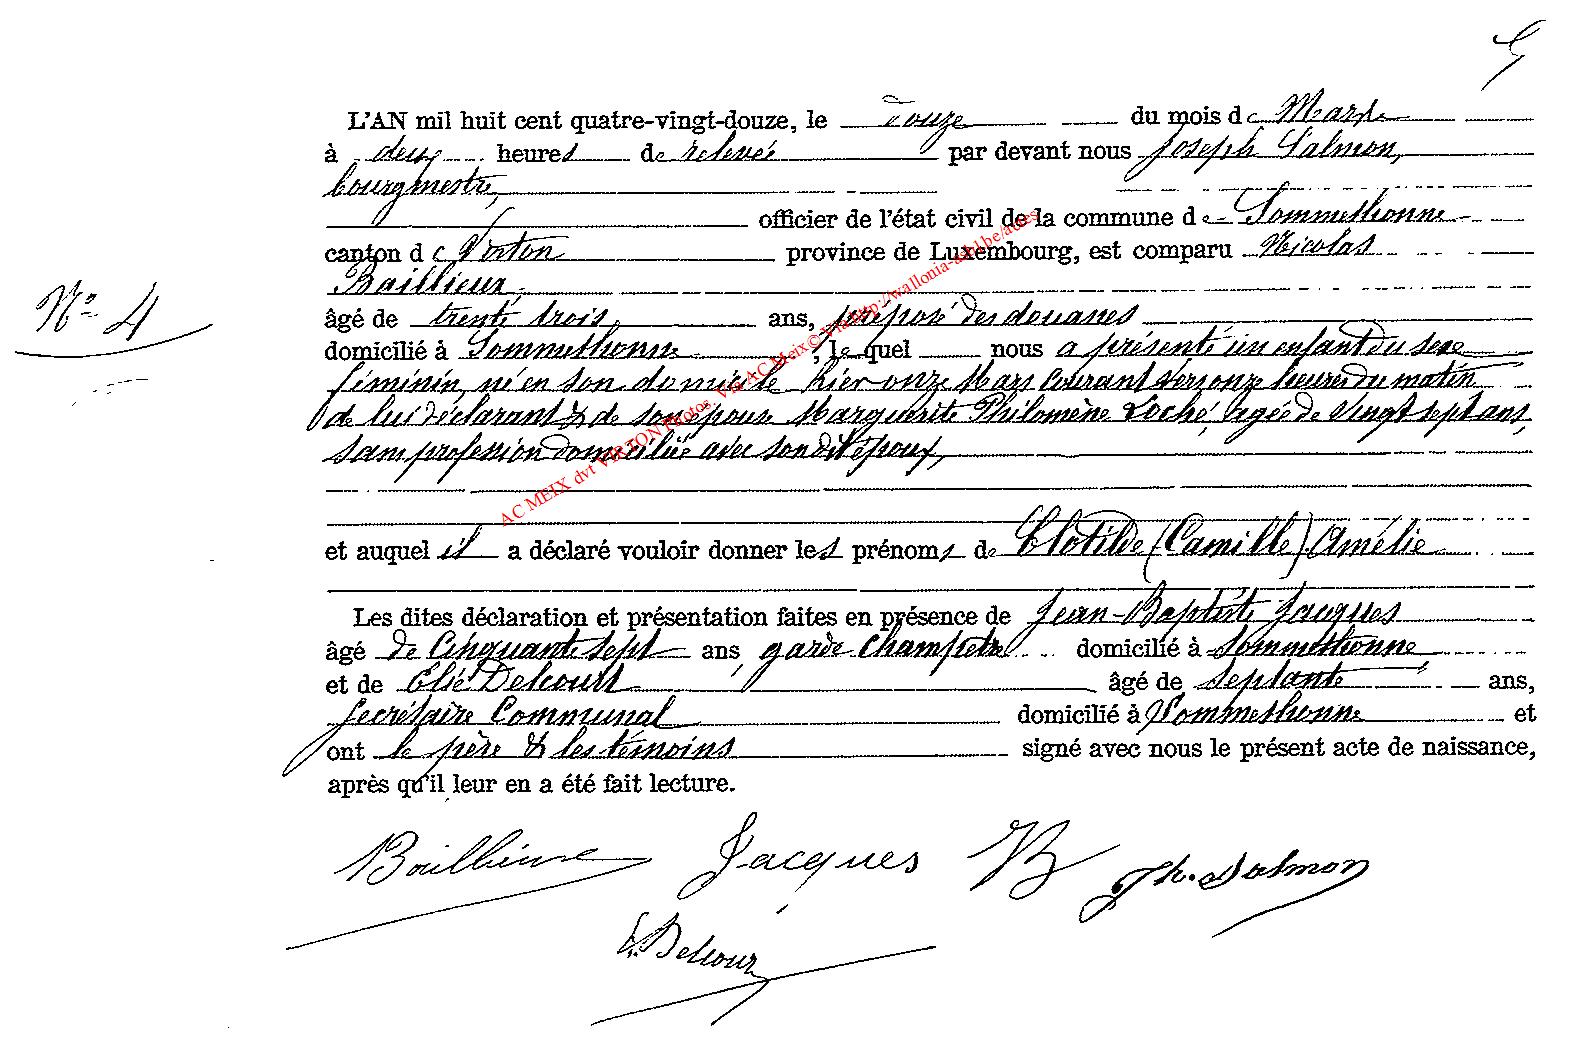 5
L'AN mil huit cent quatre-vingt-douze, le douze du mois de Mars
à deux heures de relevée par devant nous Joseph Salmon,
bourgmestre,
officier de l'état civil de la commune de Sommethonne
canton de Virton province de Luxembourg, est comparu Nicolas
Baillieux,
N° 4
âgé de trente trois ans, préposé des douanes
domicilié à Sommethonne, le quel nous a présenté un enfant du sexe
féminin, né en son domicile hier onze Mars courant vers onze heures du matin
de lui déclarant & de son épouse Marguerite Philomène Loché, agée de vingt sept ans,
sans profession domiciliée avec son dit époux,
et auquel il a déclaré vouloir donner les prénoms de Clotilde (Camille) Amélie
Les dites déclaration et présentation faites en présence de Jean-Baptiste Jacques
âgé de Cinquante sept ans, garde champêtre domicilié à Sommethonne,
et de Elisé Delcourt âgé de septante ans,
Secrétaire Communal domicilié à Sommethonne et
ont le père & les témoins signé avec nous le présent acte de naissance,
après qu'il leur en a été fait lecture.
Baillieux Jacques JB Jh. Salmon
E. Delcour
AC MEIX dvt VIRTON Photos Via AC Meix© Via http://wallonia-asbl.be/actes